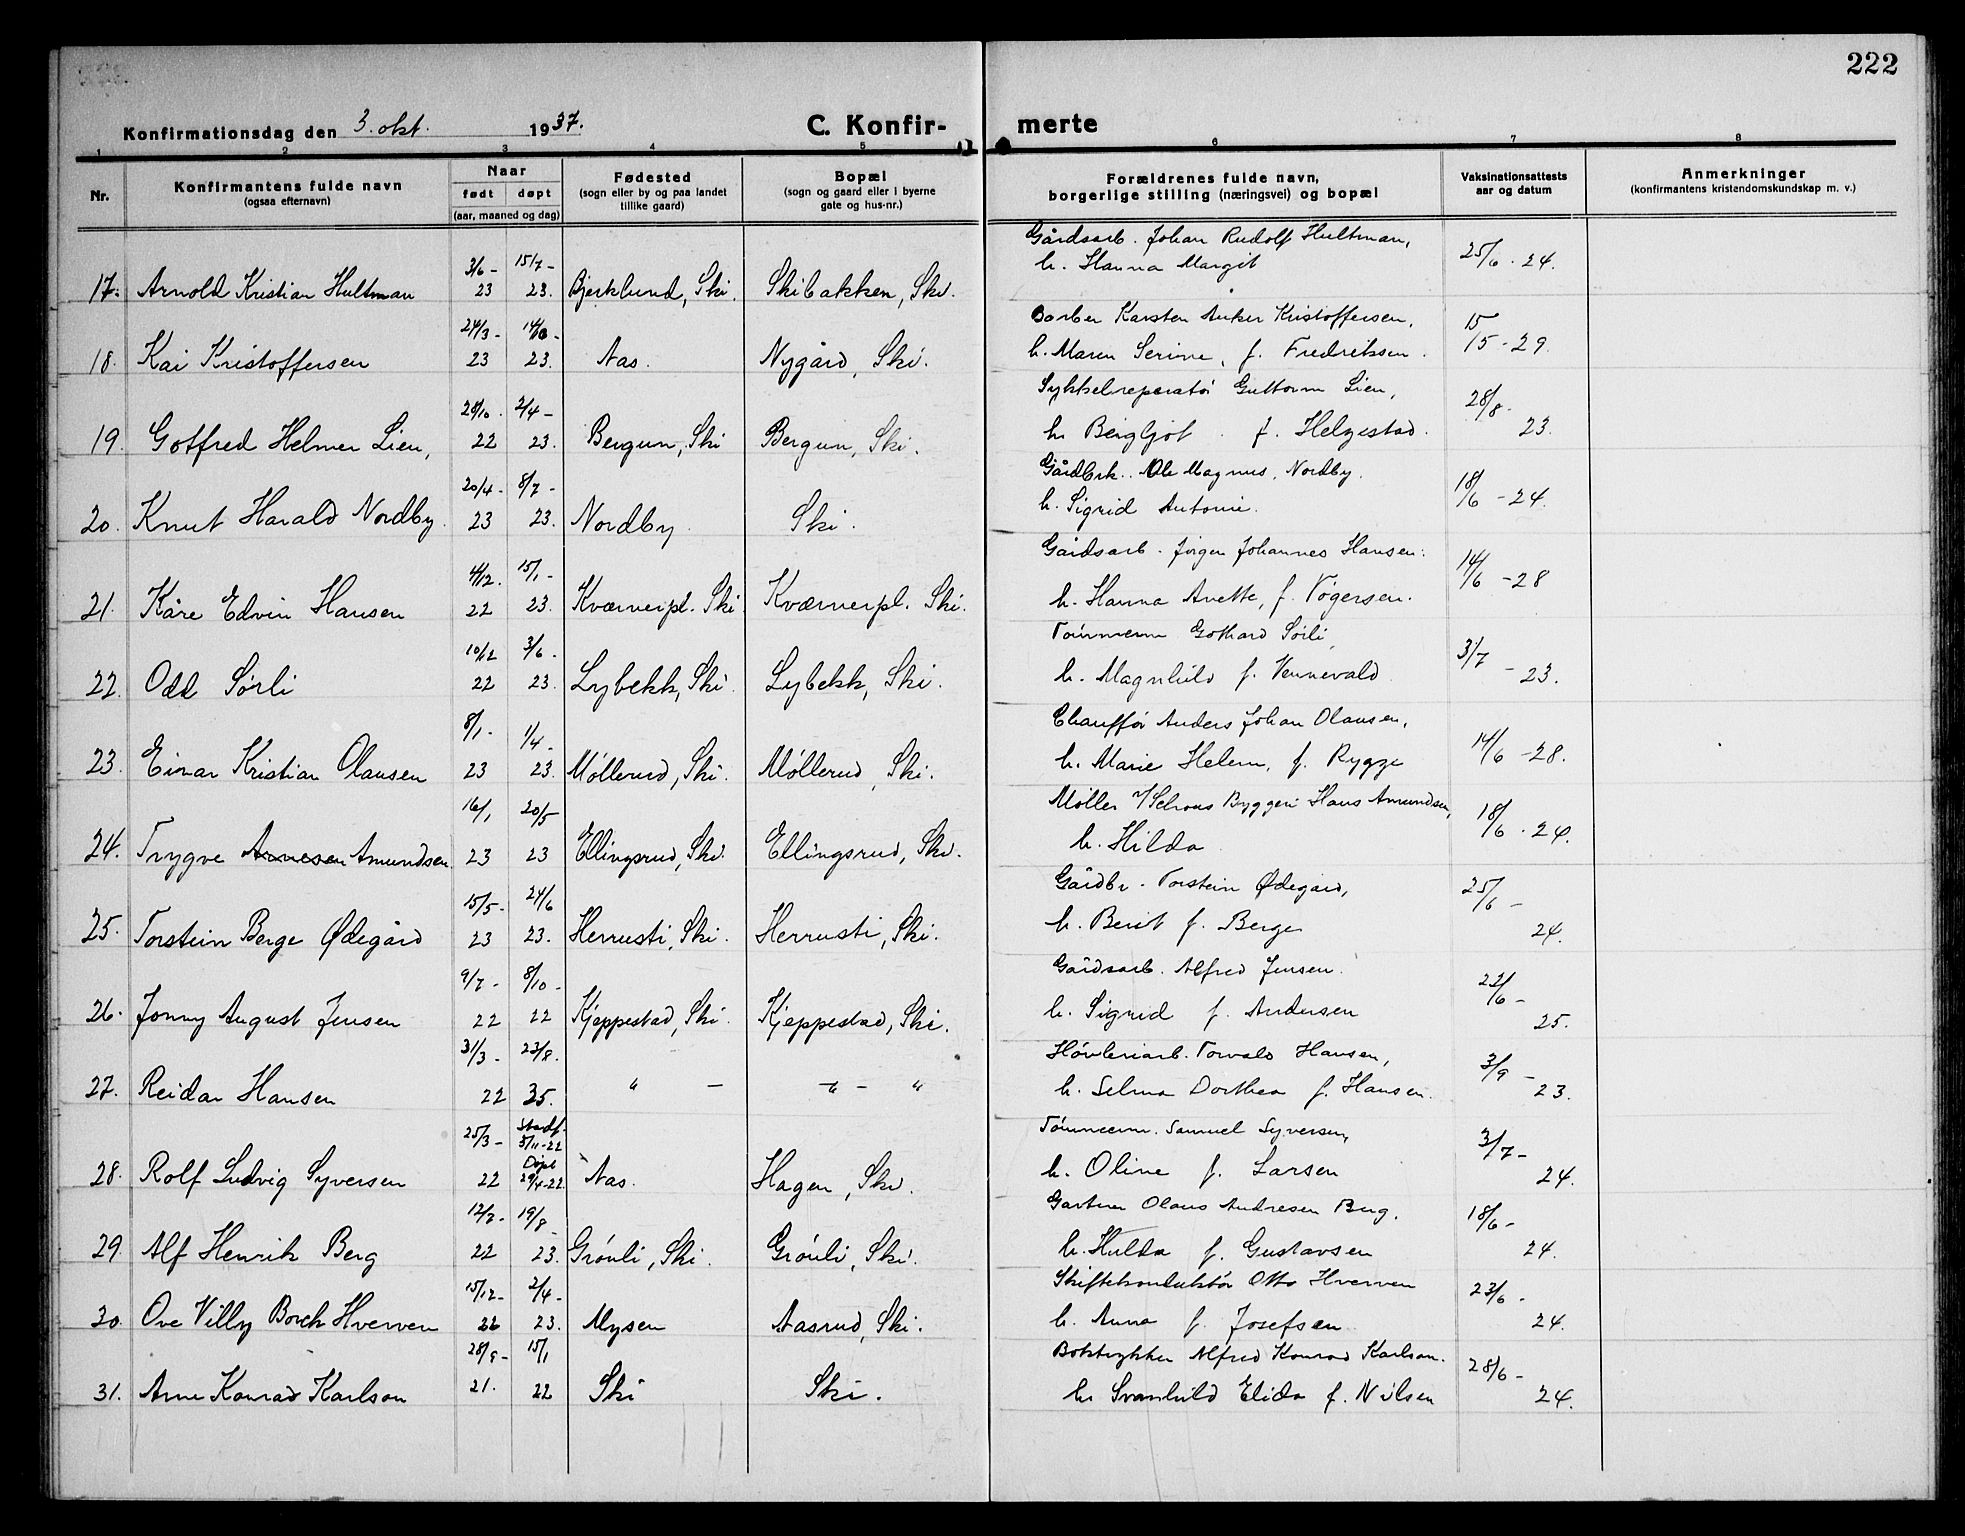 222
Konfirmationsdag den 3. okt. 1937.
C. Konfirmerte
1 2 3 4 5 6 7 8
Nr. Konfirmantens fulde navn (ogsaa efternavn) Naar født døpt (aar, maaned og dag) Fødested (sogn eller by og paa landet tillike gaard) Bopæl (sogn og gaard eller i byerne gate og hus-nr.) Forældrenes fulde navn, borgerlige stilling (næringsvei) og bopæl Vaksinationsattests aar og datum Anmerkninger (konfirmantens kristendomskundskap m. v.)
17. Arnold Kristian Hultman 3/6 - 23 15/7 - 23. Bjerklund, Ski. Skibakken, Ski. Gårdsarb. Johan Rudolf Hultman, h. Hanna Margit 25/6 - 24.
18. Kai Kristoffersen 24/3 - 23 23. Aas. Nygård, Ski. Barber Karsten Anker Kristoffersen, h. Maren Serine, f. Fredriksen. 15/15 - 29.
19. Gotfred Helmer Lien, 28/10 - 22 2/4 - 23. Bergun, Ski Bergun, Ski. Sykkelreparatør Guttorm Lien, h. Bergljot f. Helgestad. 28/8 - 23.
20. Knut Harald Nordby 20/4 - 23 8/7 - 23. Nordby. Ski. Gårdbrk. Ole Magnus Nordby. h. Sigrid Antonie. 18/6 - 24.
21. Kåre Edvin Hansen 4/12. 22 15/1 - 23. Kværnerpl. Ski. Kværnerpl. Ski. Gårdsarb. Jørgen Johannes Hansen. h. Hanna Anette, f. Tøgersen. 14/6 - 28
22. Odd Sørli 10/12 22 3/6 - 23. Lybekk, Ski. Lybekk, Ski. Tømmerm Gothard Sørli, h. Magnhild f. Vennevald. 3/7 - 23.
23. Einar Kristian Olausen 8/1 - 23 1/4 - 23. Møllerud, Ski. Møllerud, Ski. Chauffør Anders Johan Olausen, h. Marie Helene, f. Rygge 14/6 - 28.
24. Trygve Arnesen Amundsen 16/1 23 20/5 23 Ellingsrud, Ski. Ellingsrud, Ski. Møller v/ Schous Byggeri Hans Amundsen, h. Hilda 18/6 - 24.
25. Torstein Berge Ødegård 15/5 - 23 24/6 23. Herrusti, Ski. Herrusti, Ski. Gårdbr. Torstein Ødegård, h. Berit f. Berge 25/6 - 24.
26. Jonny August Jensen 9/7 - 22 8/10 - 22 Kjeppestad, Ski. Kjeppestad, Ski. Gårdsarb. Alfred Jensen. h. Sigrid f. Andersen 22/6 - 25.
27. Reidar Hansen 31/3 - 22 23/8. 35. " - - " - " Høvleriarb. Torvald Hansen, h. Selma Dorthea f. Hansen. 3/9 - 23.
28. Rolf Ludvig Syversen 25/3 - 22 Stadf. 5/11-22 Døpt 29/4-22 Aas. Hagen, Ski. Tømmerm. Samuel Syversen, h. Oline f. Larsen 3/7 - 24.
29. Alf Henrik Berg 22 19/8 - 23. Grønli, Ski. Grønli, Ski. Gartner Olaus Andresen Berg, h. Hulda f. Gustavsen 18/6 - 24.
30. Ove Villy Borch Hverven 15/12 - 22 2/4 - 23. Mysen Aasrud, Ski. Skiftekonduktør Otto Hverven h. Anna f. Josefsen 23/6 - 24.
31. Arne Konrad Karlson 28/9 - 21. 15/1 22 Ski Ski. Boktrykker Alfred Konrad Karlson. h. Svanhild Elida f. Nilsen 28/6 - 24.